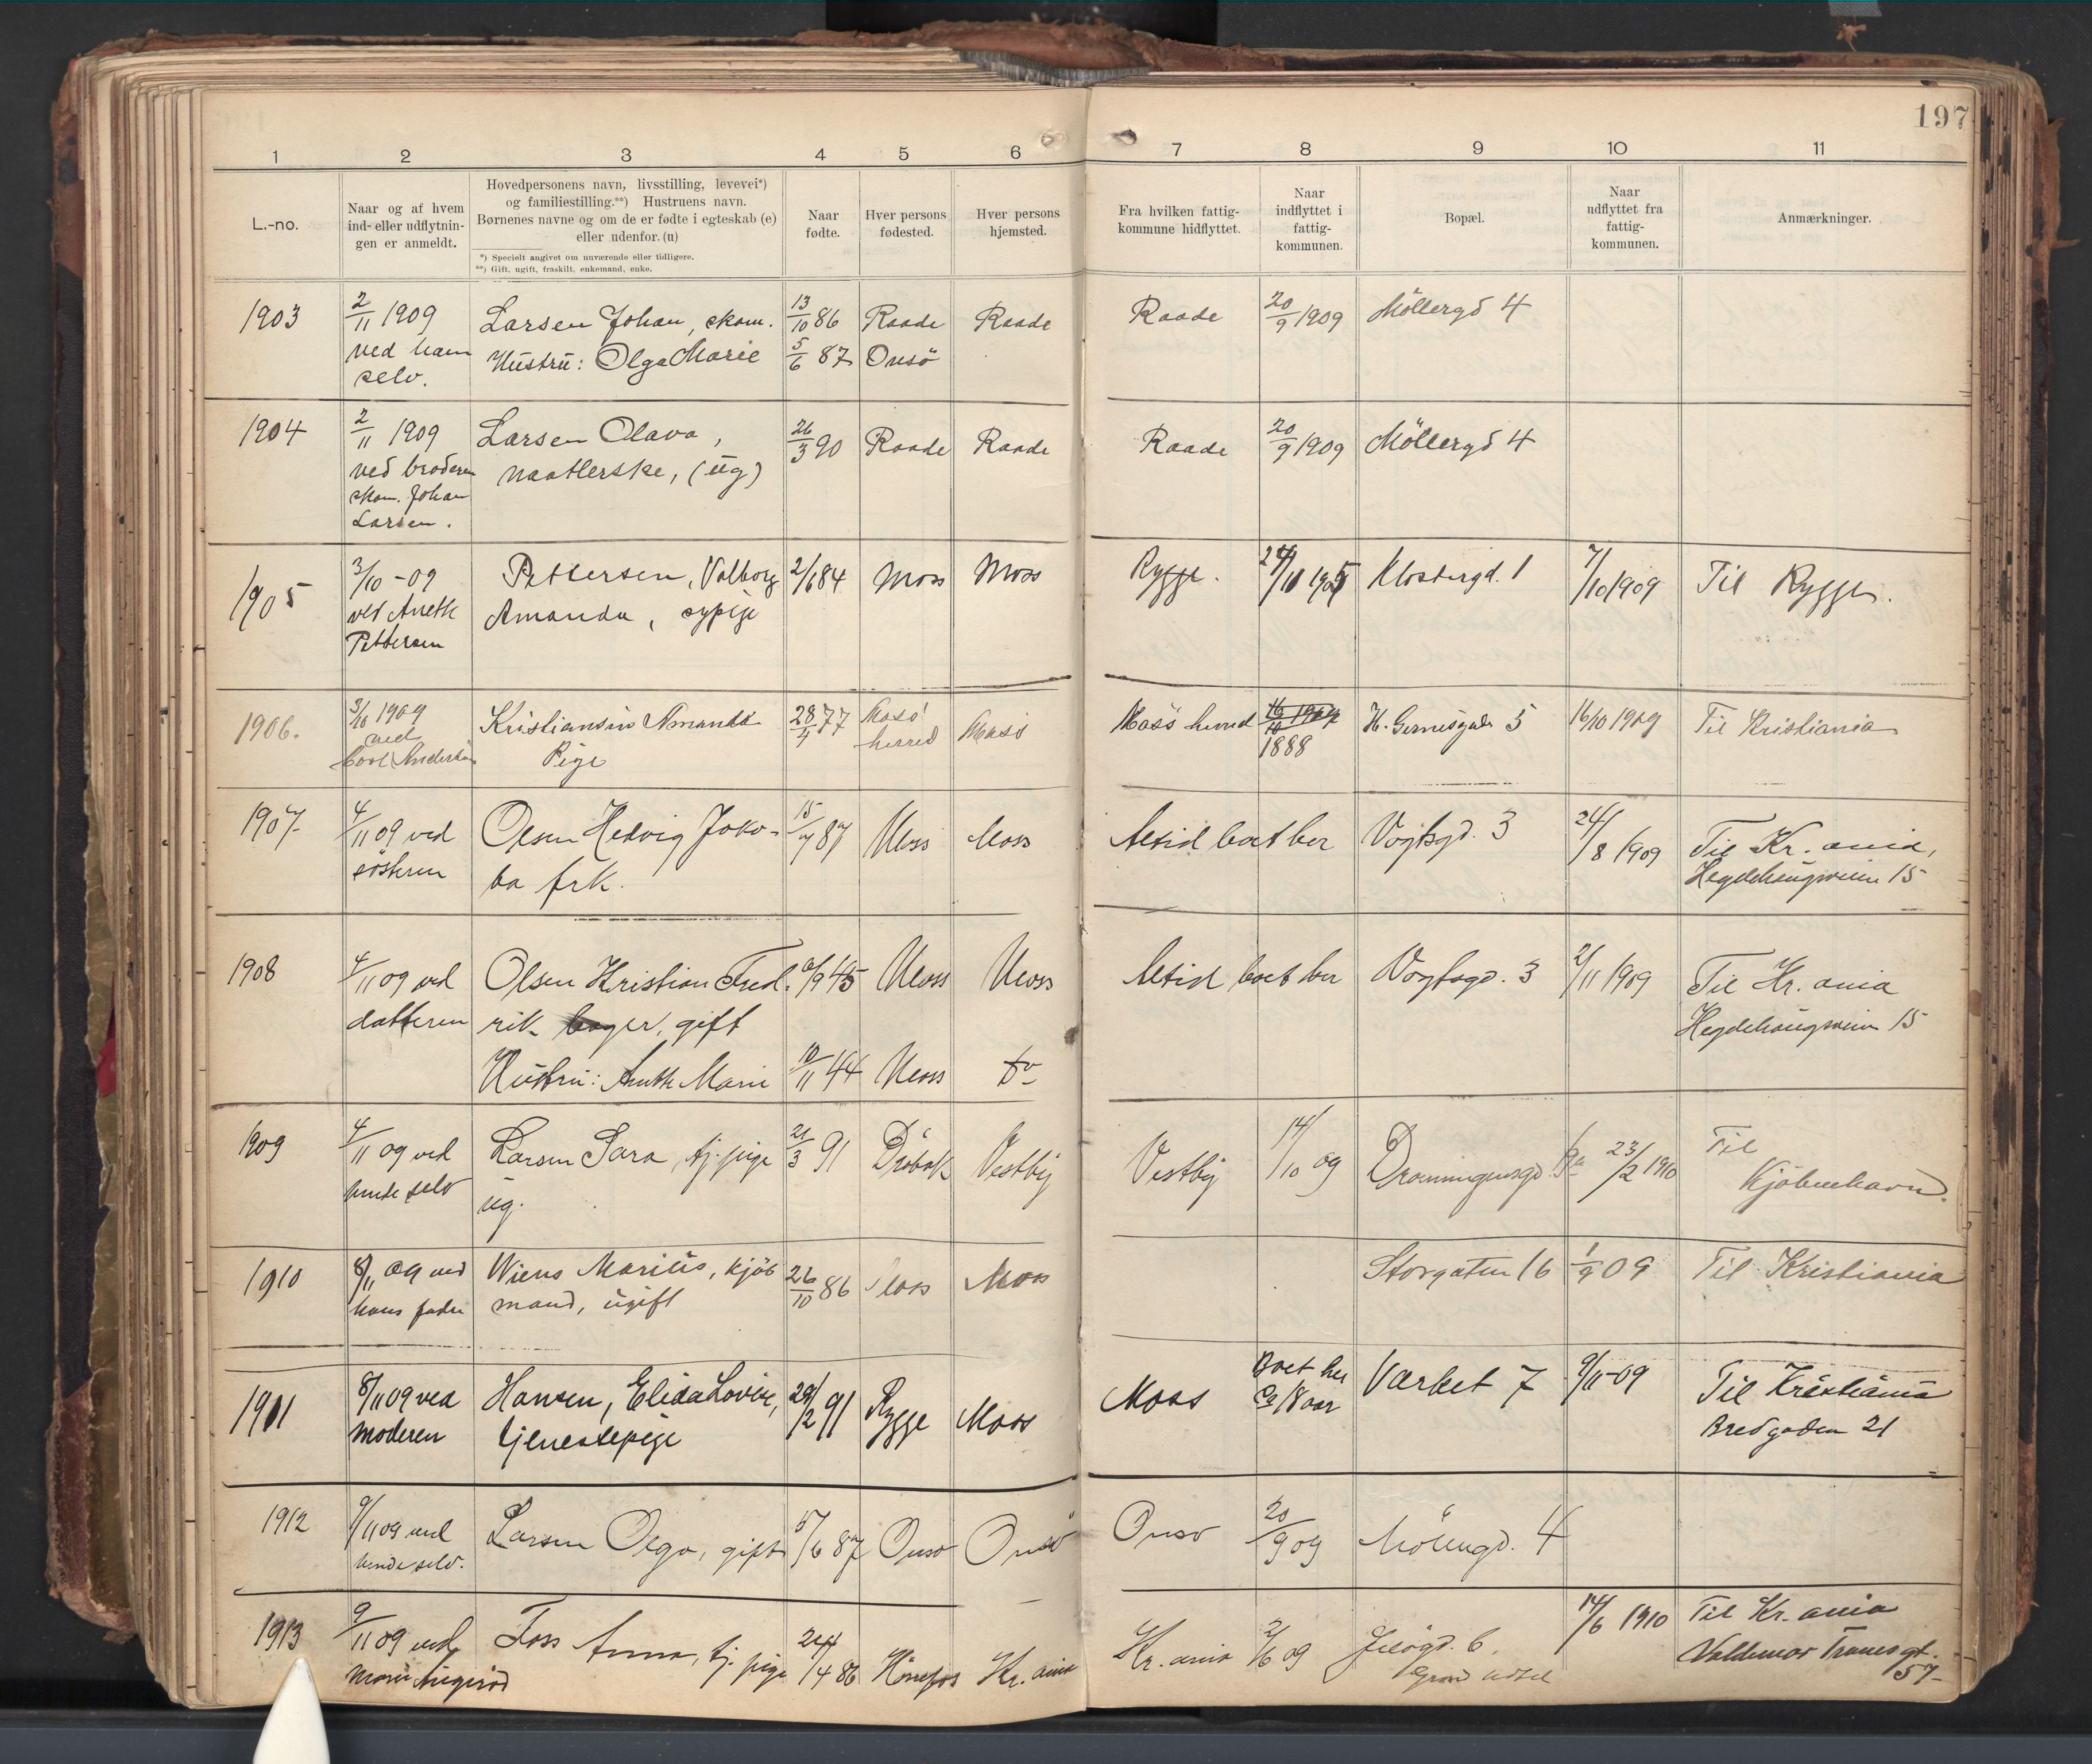 197
1 2 3 4 5 6 7 8 9 10 11
L.-no.
Naar og af hvem
ind- eller udflytnin-
gen er anmeldt.
Hovedpersonens navn, livsstilling, levevei*)
og familiestilling.**) Hustruens navn.
Børnenes navne og om de er fødte i egteskab (e)
eller udenfor. (u)
*) Specielt angivet om nuværende eller tidligere.
**) Gift, ugift, fraskilt, enkemand, enke.
Naar
fødte.
Hver persons
fødested.
Hver persons
hjemsted.
Fra hvilken fattig-
kommune hidflyttet.
Naar
indflyttet i
fattig-
kommunen.
Bopæl.
Naar
udflyttet fra
fattig-
kommunen.
Anmærkninger.
1903 2/11 1909 Larsen Johan, skom. 13/10 86 Raade Raade Raade 20/9 1909 Möllergd 4
ved ham Hustru: Olga Marie 5/6 87 Onsö
selv.
1904 2/11 1909 Larsen Olava, 26/3 90 Raade Raade Raade 20/9 1909 Möllergd 4
ved broderen naatlerske, (ug)
skom. Johan
Larsen.
1905 3/10 -09 Pettersen, Valborg 2/1 84 Moss Moss Rygge. Klostergd. 1 7/10 1909 Til Rygge.
ved Aneth Amanda, sypige
Pettersen
1906. 3/10 1909 Kristiansen Amanda 28/4 77 Moss Moss Moss herred 16/10 1909 H. Gernesgade 5 16/10 1909 Til Kristiania
ved Pige herred 1888
Carl Andersen
1907. 4/11 09 ved Olsen Hedvig Jako- 15/7 87 Moss Moss Altid boet her Vogtsgd. 3 24/8 1909 Til Kr.ania,
søsteren ba frk. Hegdehaugsveien 15
1908 4/11 09 ved Olsen Kristian Fred- 6/9 45 Moss Moss Altid boet her Vogtsgd. 3 2/11 1909 Til Kr.ania
datteren rik bager, gift Hegdehaugsveien 15
Hustru: Anethe Marie 10/11 44 Moss do
1909 4/11 09 ved Larsen Sara, tj.pige 21/3 91 Dröbak Vestby Vestby 14/10 09 Dronningensgd. 23/2 1910 Til
hende selv ug. Kjöbenhavn.
1910 8/11 09 ved Wiens Marius, kjöb 26/10 86 Moss Moss Storgaten 16 1/9 09 Til Kristiania
hans fader mand, ugift
1911 8/11 09 ved Hansen, Elida Lovise, 29/2 91 Rygge Moss Moss Boet her Værket 7 9/11-09 Til Kristiania
moderen tjenestepige ca 18 aar Bredgaden 21
1912 9/11 09 ved Larsen Olga, gift 5/6 87 Onsö Onsö Onsö 20/9 09 Möllergd. 4
hende selv.
1913 9/11 09 ved Foss Anna, tj. pige 24/4 86 Kr.ania Kr.ania 2/6 09 Jelögd. 6. 14/6 1910 Til Kr.ania
Marie Grand Valdemar Tranesgt.
57-